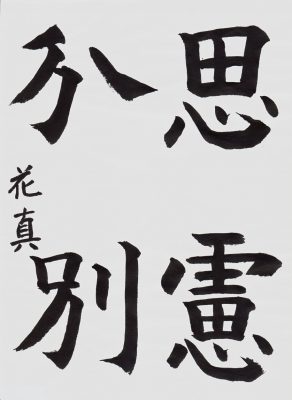 思慮
分別
花真